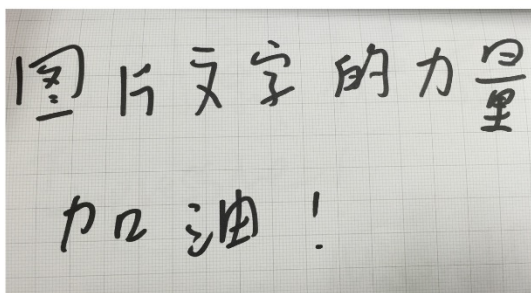 图片文字的力量
加油！